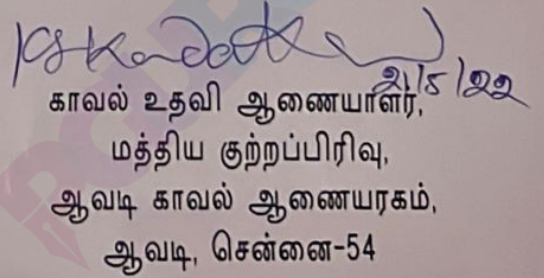 21/5/22
காவல் உதவி ஆணையாளர்,
மத்திய குற்றப்பிரிவு,
ஆவடி காவல் ஆணையரகம்,
ஆவடி, சென்னை-54